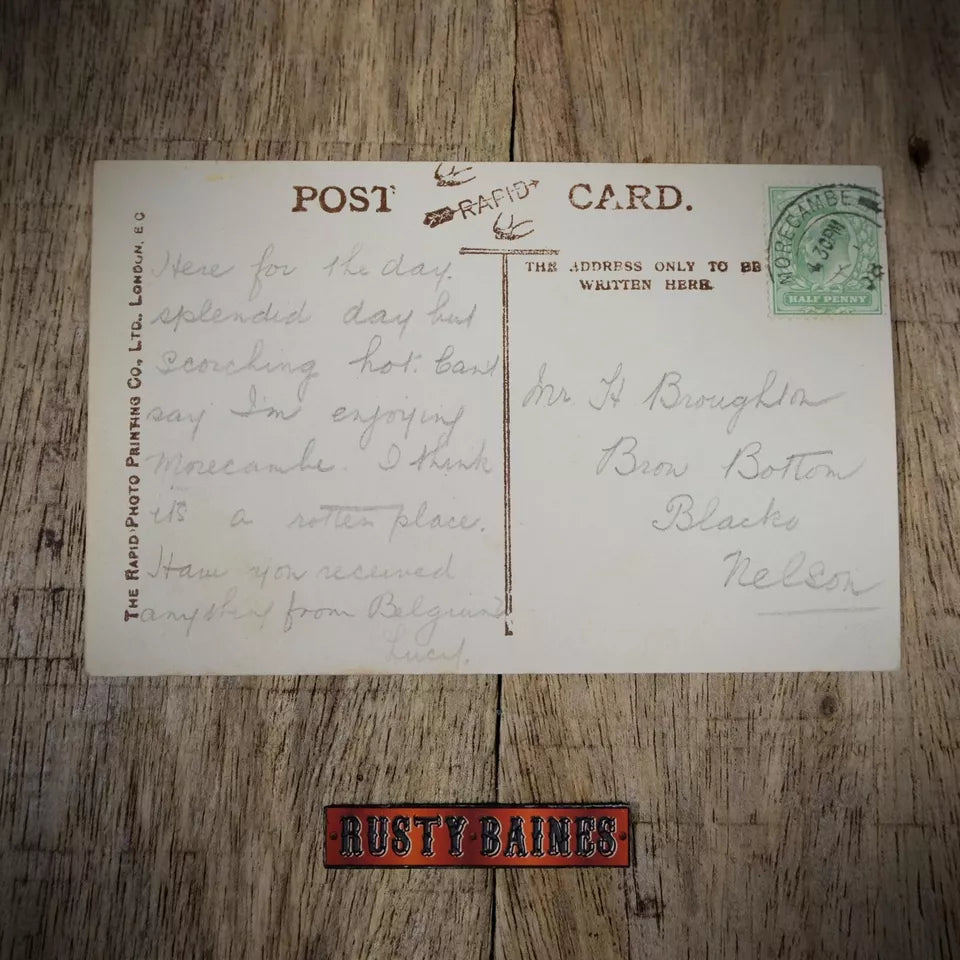 POST RAPID CARD.
THE RAPID PHOTO PRINTING CO., LTD., LONDON, E C
Here for the day.
splendid day but
scorching hot. Cant
say I'm enjoying
Morecambe. I think
its a rotten place.
Have you received
anything from Belgium?
Lucy.
THE ADDRESS ONLY TO BE
WRITTEN HERE.
MORECAMBE
4 30PM
HALF PENNY
Mr H Broughton
Brow Bottom
Blacko
Nelson
RUSTY BAINES